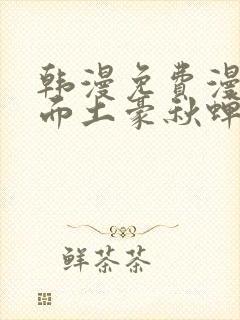 韩漫免费漫
而土豪秋蝉
鲜茶茶